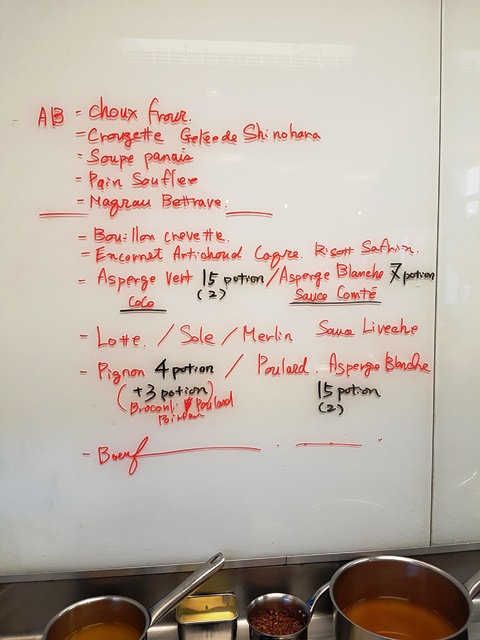 AB = choux frour.
- Crouzette Gelée de Shinohara
- Soupe panais
- Pain Soufler
- Magrau Bettrave.
- Bouillon crevette.
- Encornet Artichoud Coqre. Risott Safrin.
- Asperge vert 15 potion / Asperge Blanche 7 potion
CoCo (2) Sauce Comté
- Lotte. / Sole / Merlin Sauce Liveche
- Pignon 4 potion / Poulard. Asperge Blanche
(+3 potion) 15 potion
Brocoli Poulard (2)
Poireau
- Boeuf